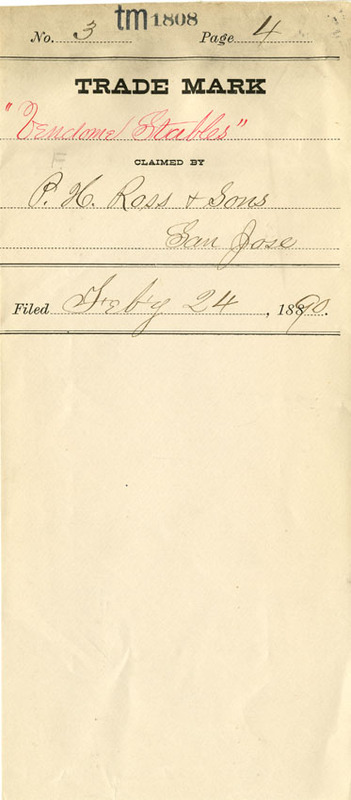 tm 1808
No. 3 Page 4
TRADE MARK
"Vendome Stables"
CLAIMED BY
P. H. Ross & Sons
San Jose
Filed Feb'y 24, 1890.